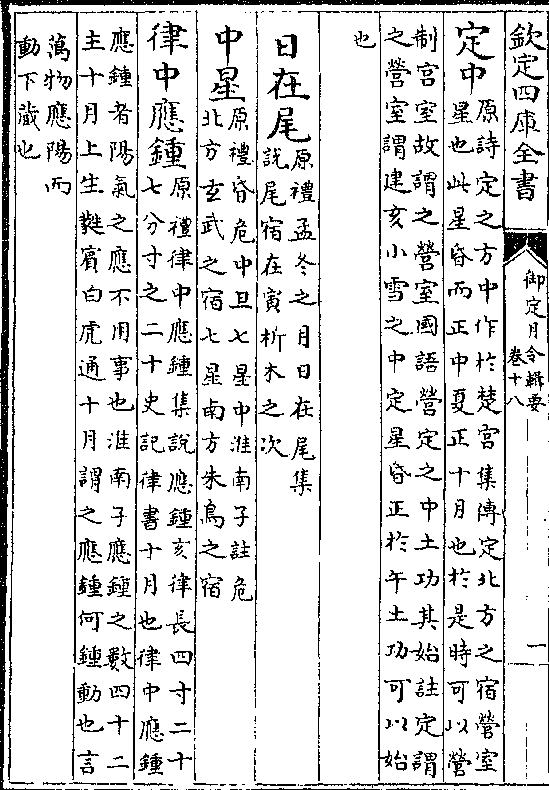 欽定四庫全書
御定月令輯要
卷十八
一
定中
原詩定之方中作於楚宫集傳定北方之宿營室
星也此星昏而正中夏正十月也於是時可以營
制宫室故謂之營室國語營定之中土功其始註定謂
之營室謂建亥小雪之中定星昏正於午土功可以始
也
日在尾
原禮孟冬之月日在尾集
說尾宿在寅析木之次
中星
原禮昏危中旦七星中淮南子註危
北方玄武之宿七星南方朱鳥之宿
律中應鍾
原禮律中應鍾集說應鍾亥律長四寸二十
七分寸之二十史記律書十月也律中應鍾
應鍾者陽氣之應不用事也淮南子應鍾之數四十二
主十月上生蕤賓白虎通十月謂之應鍾何鍾動也言
萬物應陽而
動下藏也